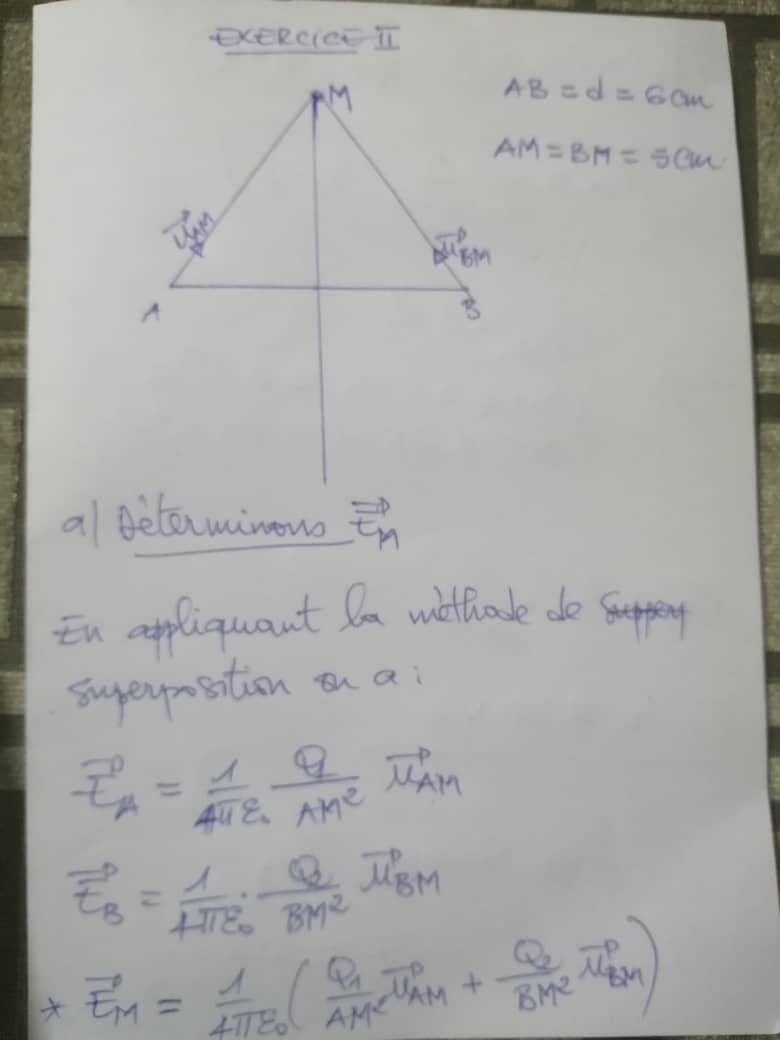 EXERCICE II
M
AB = d = 6cm
AM = BM = 5cm
→u_AM
→u_BM
A
B
a/ Déterminons →E_M
En appliquant la méthode de
superposition on a :
→E_A = 1/4πε₀ Q₁/AM² →u_AM
→E_B = 1/4πε₀ · Q₂/BM² →u_BM
* →E_M = 1/4πε₀ ( Q₁/AM² →u_AM + Q₂/BM² →u_BM )